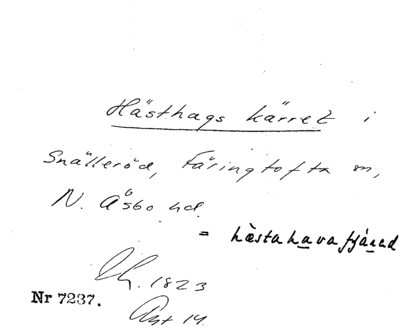 Hästhags kärret i
Snälleröd, Färingtofta sn,
N. Åsbo hd.
= hästahava fjärad
Lh. 1823
Nr 7237.
Akt 14.